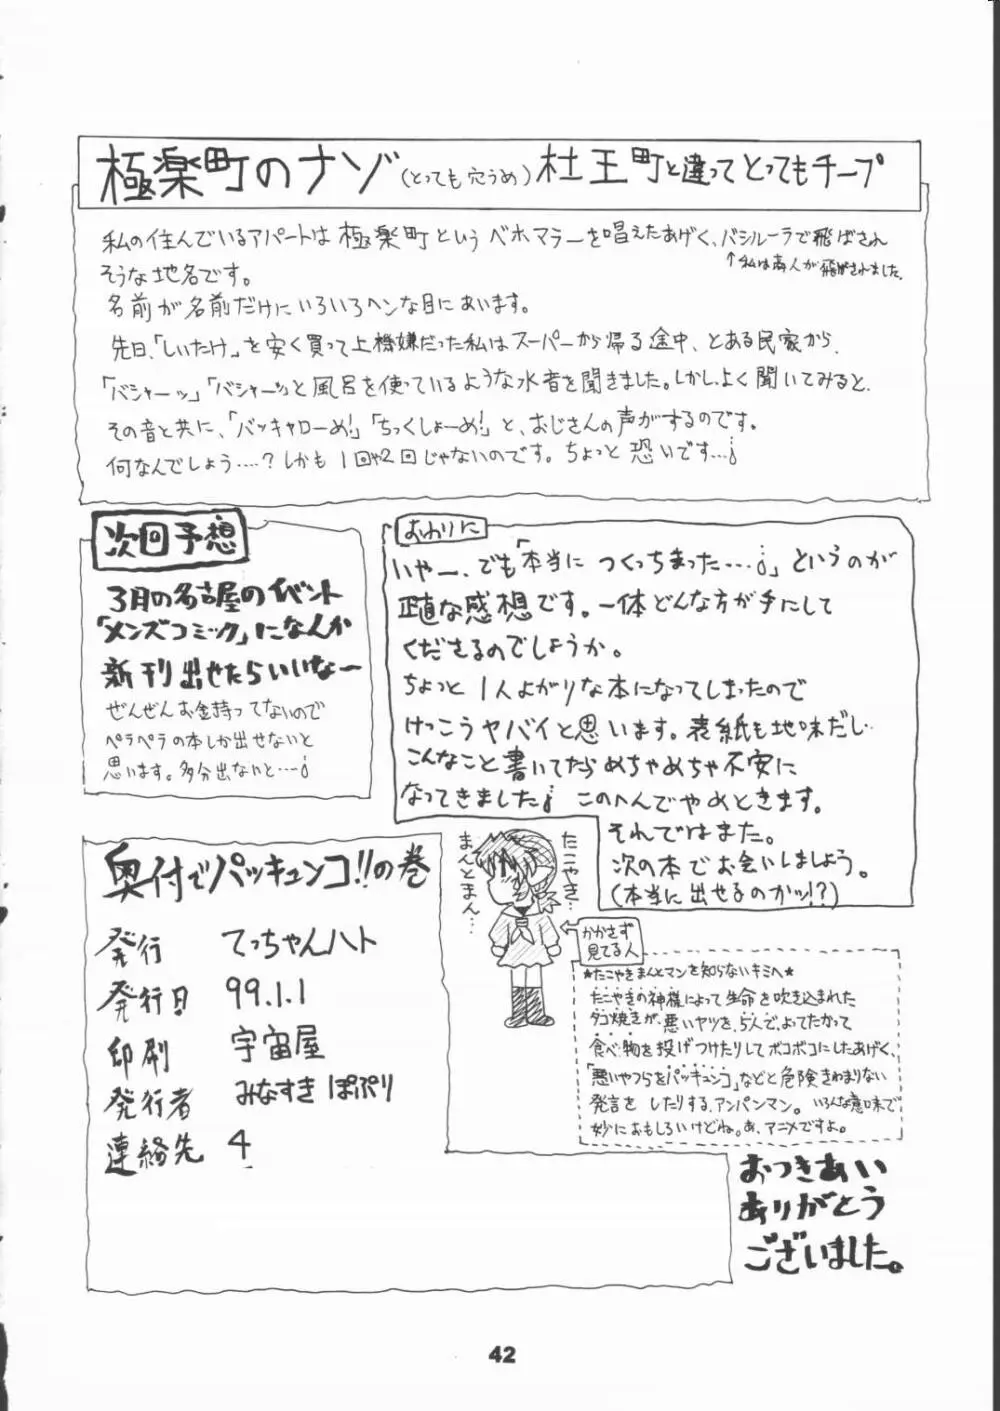 極楽町のナゾ(とっても穴うめ) 杜王町と違ってとってもチープ
私の住んでいるアパートは極楽町というベホマラーを唱えたあげく、バシルーラで飛ばされ
↑私は商人が飛ばされました。
そうな地名です。
名前が名前だけにいろいろヘンな目にあいます。
先日、「しいたけ」を安く買って上機嫌だった私はスーパーから帰る途中、とある民家から、
「バシャーッ」「バシャーッ」と風呂を使っているような水音を聞きました。しかし、よく聞いてみると、
その音と共に、「バッキャローめ!」「ちっくしょーめ!」と、おじさんの声がするのです。
何なんでしょう‥‥?しかも1回や2回じゃないのです。ちょっと恐いです‥‥。
次回予想
3月の名古屋のイベント
「メンズコミック」になんか
新刊出せたらいいなー
ぜんぜんお金持ってないので
ペラペラの本しか出せないと
思います。多分出ないと‥‥。
おわりに
いやー、でも「本当につくっちまった‥‥。」というのが
正直な感想です。一体どんな方が手にして
くださるのでしょうか。
ちょっと1人よがりな本になってしまったので
けっこうヤバイと思います。表紙も地味だし‥
こんなこと書いてたらめちゃめちゃ不安に
なってきました。このへんでやめときます。
それではまた。
次の本でお会いしましょう。
(本当に出せるのかッ!?)
奥付でパッキュンコ!!の巻
発行 てっちゃんハト
発行日 99.1.1
印刷 宇宙屋
発行者 みなすき ぽぷり
連絡先 4
たこやき…
まんとまん…
かかさず
見てる人
★たこやきまんとマンを知らないキミへ★
たこやきの神様によって生命を吹き込まれた
タコ焼きが、悪いヤツを、5人で、よってたかって
食べ物を投げつけたりしてボコボコにしたあげく、
「悪いやつらをパッキュンコ」などと危険きわまりない
発言をしたりする、アンパンマン。いろんな意味で
妙におもしろいけどね。あ、アニメですよ。
おつきあい
ありがとう
ございました。
42